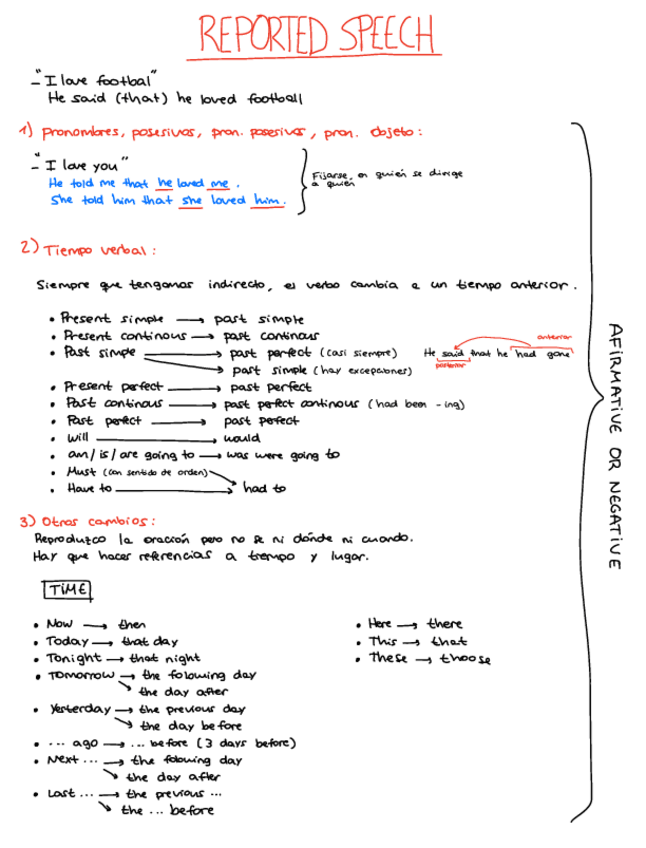 REPORTED SPEECH
– "I love footbal"
He said (that) he loved football
1) Pronombres, posesivos, pron. posesivos, pron. objeto:
– "I love you"
He told me that he loved me.
She told him that she loved him.
Fijarse, en quién se dirige
a quién
2) Tiempo verbal:
Siempre que tengamos indirecto, el verbo cambia a un tiempo anterior.
• Present simple → past simple
• Present continous → past continous
• Past simple → past perfect (casi siempre)
→ past simple (hay excepciones)
anterior
He said that he had gone
posterior
• Present perfect → past perfect
• Past continous → past perfect continous (had been -ing)
• Past perfect → past perfect
• Will → would
• am/is/are going to → was were going to
• Must (con sentido de orden)
• Have to → had to
3) Otros cambios:
Reproduzco la oración pero no se ni dónde ni cuando.
Hay que hacer referencias a tiempo y lugar.
TIME
• Now → then
• Today → that day
• Tonight → that night
• Tomorrow → the folowing day
→ the day after
• Yesterday → the previous day
→ the day before
• ... ago → ... before (3 days before)
• Next ... → the folowing day
→ the day after
• Last ... → the previous ...
→ the ... before
• Here → there
• This → that
• These → choose
AFIRMATIVE OR NEGATIVE